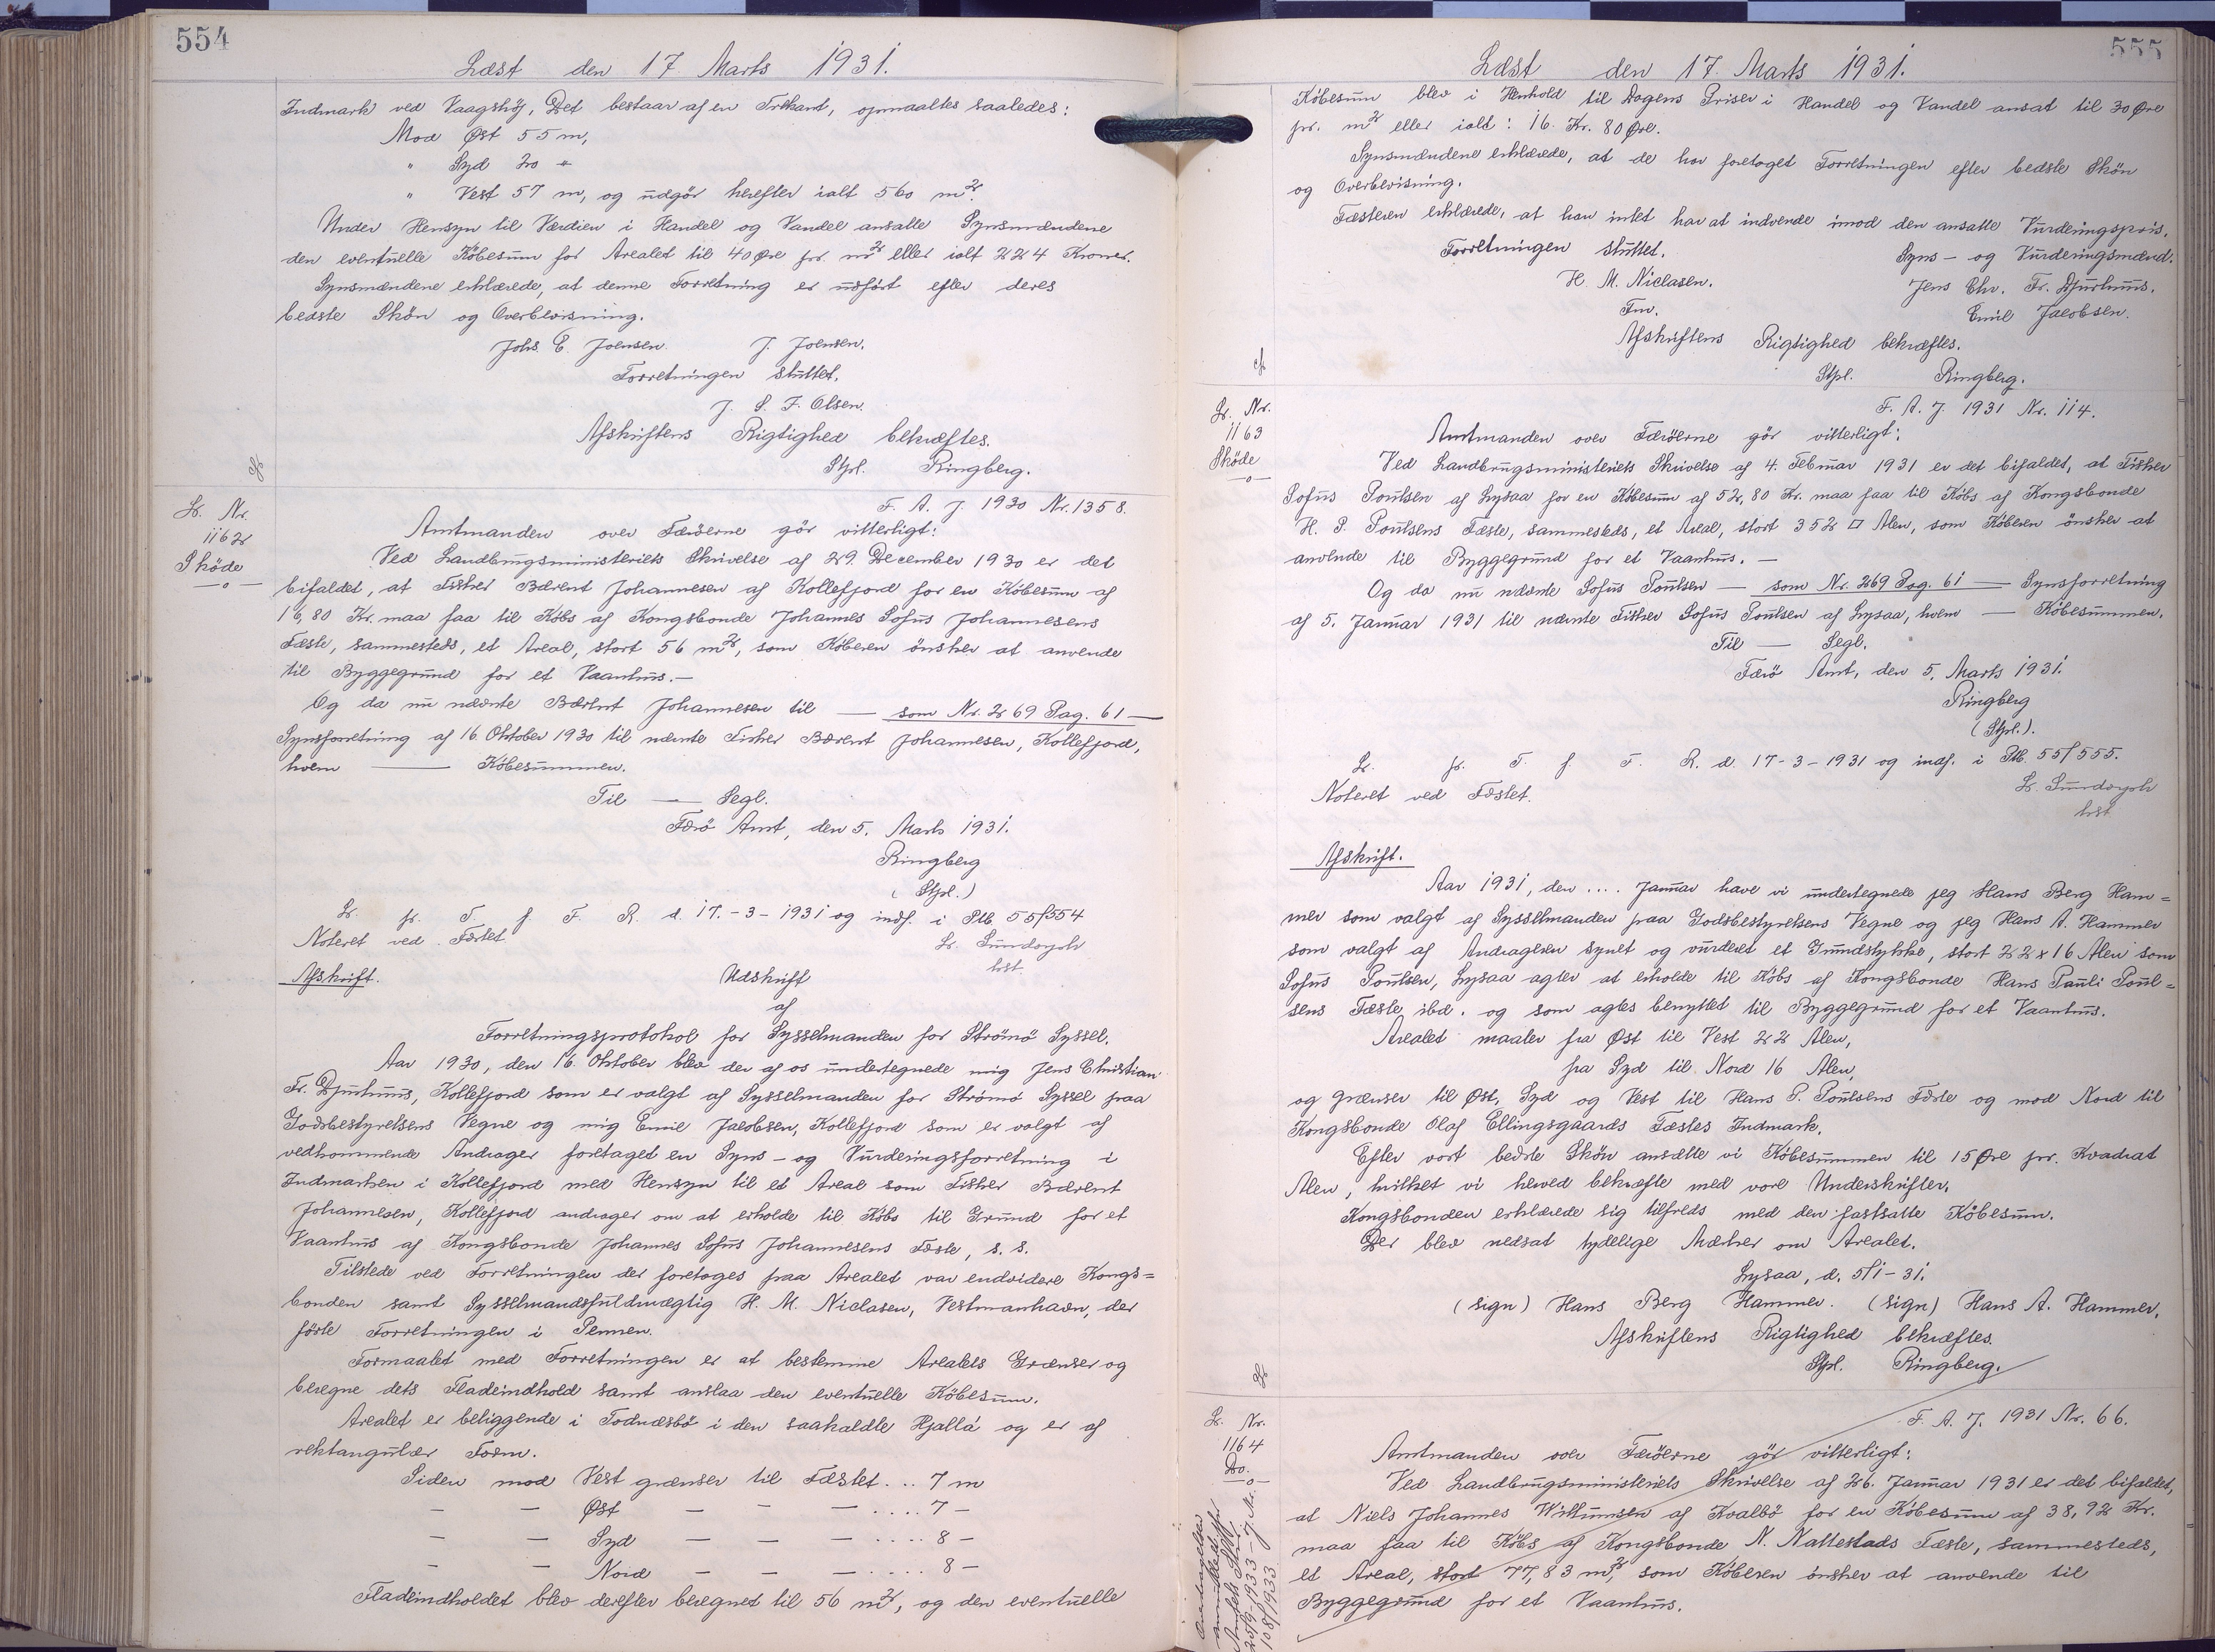 554
Læst den 17 Marts 1931.
Indmark ved Vaagshöj, Det bestaar af en Trekant, opmaaltes saaledes:
Mod Øst 55 m,
" Syd 20 "
" Vest 57 m, og udgör herefter ialt 560 m².
Under Hensyn til Værdien i Handel og Vandel ansatte Synsmændene
den eventuelle Köbesum for Arealet til 40 Øre pr. m² eller ialt 224 Kroner.
Synsmændene erklærede, at denne Forretning er udfört efter deres
bedste Skön og Overbevisning.
Johs. E. Joensen. J. Joensen.
Forretningen sluttet.
J. S. F. Olsen.
Afskriftens Rigtighed bekræftes.
Stpl. Ringberg.
L. Nr.
1162
Sköde
F. A. J. 1930 Nr. 1358.
Amtmanden over Færöerne gör vitterligt:
Ved Landbrugsministeriets Skrivelse af 29. December 1930 er det
bifaldet, at Fisker Bærent Johannesen af Kollefjord for en Köbesum af
16,80 Kr. maa faa til Köbs af Kongsbonde Johannes Sofus Johannesens
Fæste, sammesteds, et Areal, stort 56 m², som Köberen önsker at anvende
til Byggegrund for et Vaanhus. —
Og da nu nævnte Bærent Johannesen til — som Nr. 269 Pag. 61 —
Synsforretning af 16 Oktober 1930 til nævnte Fisker Bærent Johannesen, Kollefjord,
hvem — Köbesummen.
Til — Segl.
Færö Amt, den 5. Marts 1931.
Ringberg
(Stpl.)
L. fr. T. f. F. R. d. 17.-3-1931 og indf. i Ptb. 55/554
Noteret ved Fæstet
Afskrift.
Udskrift
af
Forretningsprotokol for Sysselmanden for Strömö Syssel.
Aar 1930, den 16. Oktober blev der af os undertegnede mig Jens Christian
Fr. Djurhuus, Kollefjord som er valgt af Sysselmanden for Strömö Syssel paa
Godsbestyrelsens Vegne og mig Emil Jacobsen, Kollefjord som er valgt af
vedkommende Andrager foretaget en Syns- og Vurderingsforretning i
Indmarken i Kollefjord med Hensyn til et Areal som Fisker Bærent
Johannesen, Kollefjord andrager om at erholde til Köbs til Grund for et
Vaanhus af Kongsbonde Johannes Sofus Johannesens Fæste, s. s.
Tilstede ved Forretningen der foretoges paa Arealet var endvidere Kongs=
bonden samt Sysselmandsfuldmægtig H. M. Niclasen, Vestmanhavn, der
förte Forretningen i Pennen.
Formaalet med Forretningen er at bestemme Arealets Grænser og
beregne dets Fladeindhold samt anslaa den eventuelle Köbesum.
Arealet er beliggende i Todnæsbö i den saakaldte Hjallá og er af
rektangulær Form.
Siden mod Vest grænser til Fæstet... 7 m
— — Øst — — — .... 7 —
— — Syd — — — .... 8 —
— — Nord — — — .... 8 —
Fladeindholdet blev derefter beregnet til 56 m², og den eventuelle
555
Læst den 17. Marts 1931.
Köbesum blev i Henhold til Dagens Priser i Handel og Vandel ansat til 30 Øre
pr. m² eller ialt: 16. Kr. 80 Øre.
Synsmændene erklærede, at de har foretaget Forretningen efter bedste Skön
og Overbevisning.
Fæsteren erklærede, at han intet har at indvende imod den ansatte Vurderingspris.
Forretningen sluttet.
Syns- og Vurderingsmænd.
H. M. Niclasen.
Jens Chr. Fr. Djurhuus.
Fm.
Emil Jacobsen.
Afskriftens Rigtighed bekræftes.
Stpl. Ringberg.
L. Nr.
1163
Sköde
F. A. J. 1931 Nr. 114.
Amtmanden over Færöerne gör vitterligt:
Ved Landbrugsministeriets Skrivelse af 4. Februar 1931 er det bifaldet, at Fisker
Sofus Poulsen af Lysaa for en Köbesum af 52,80 Kr. maa faa til Köbs af Kongsbonde
H. P. Poulsens Fæste, sammesteds, et Areal, stort 352 □ Alen, som Köberen önsker at
anvende til Byggegrund for et Vaanhus. —
Og da nu nævnte Sofus Poulsen — som Nr. 269 Pag. 61 — Synsforretning
af 5. Januar 1931 til nævnte Fisker Sofus Poulsen af Lysaa, hvem — Köbesummen.
Til — Segl.
Færö Amt, den 5. Marts 1931.
Ringberg
(Stpl.).
L. fr. T. f. F. R. d. 17-3-1931 og indf. i Ptb. 55/555.
Noteret ved Fæstet.
Afskrift.
Aar 1931, den .... Januar have vi undertegnede jeg Hans Berg Ham=
mer som valgt af Sysselmanden paa Godsbestyrelsens Vegne og jeg Hans A. Hammer
som valgt af Andrageren synet og vurderet et Grundstykke, stort 22 x 16 Alen som
Sofus Poulsen, Lysaa agter at erholde til Köbs af Kongsbonde Hans Pauli Poul=
sens Fæste ibd. og som agtes benyttet til Byggegrund for et Vaanhus.
Arealet maaler fra Øst til Vest 22 Alen,
fra Syd til Nord 16 Alen,
og grænser til Øst, Syd og Vest til Hans P. Poulsens Fæste og mod Nord til
Kongsbonde Olaf Ellingsgaards Fæstes Indmark.
Efter vort bedste Skön ansætte vi Köbesummen til 15 Øre pr. Kvadrat
Alen, hvilket vi herved bekræfte med vore Underskrifter.
Kongsbonden erklærede sig tilfreds med den fastsatte Köbesum.
Der blev nedsat tydelige Mærker om Arealet.
Lysaa, d. 5/1-31.
(sign) Hans Berg Hammer. (sign) Hans A. Hammer.
Afskriftens Rigtighed bekræftes.
Stpl. Ringberg.
L. Nr.
1164
Do.
F. A. J. 1931 Nr. 66.
Amtmanden over Færöerne gör vitterligt:
Ved Landbrugsministeriets Skrivelse af 26. Januar 1931 er det bifaldet,
at Niels Johannes Wilhumsen af Kvalbö for en Köbesum af 38,92 Kr.
maa faa til Köbs af Kongsbonde N. Nattestads Fæste, sammesteds,
et Areal, stort 77,83 m², som Köberen önsker at anvende til
Byggegrund for et Vaanhus.